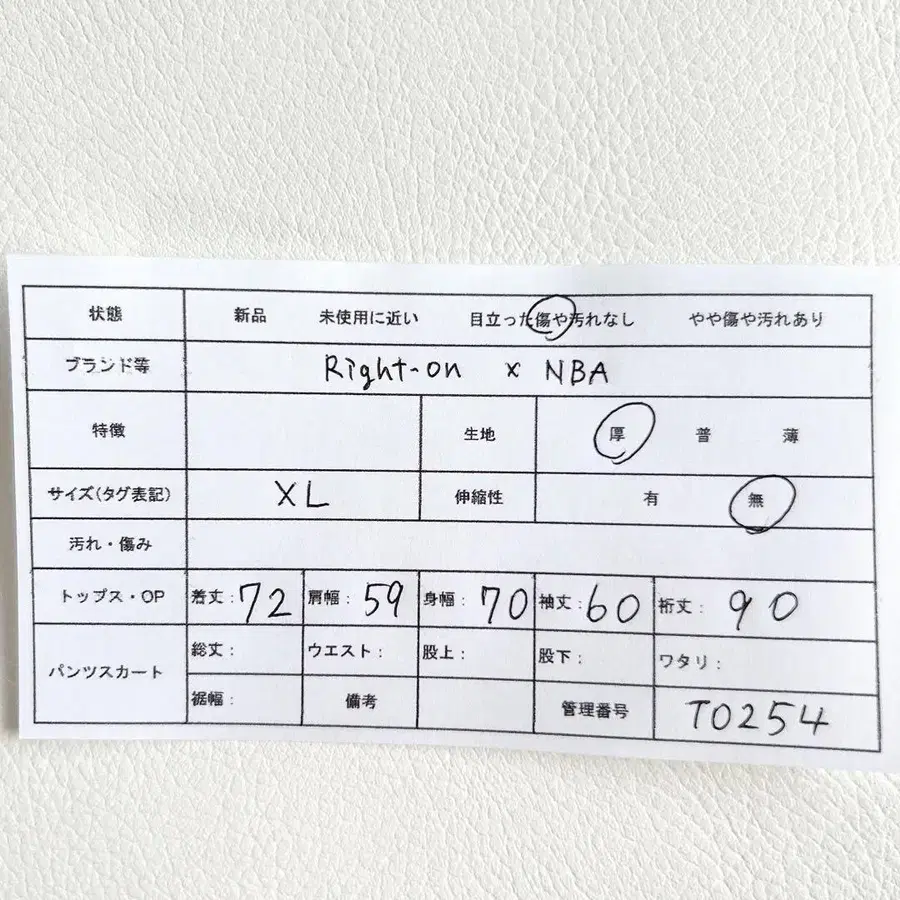 状態 新品 未使用に近い 目立った傷や汚れなし やや傷や汚れあり
ブランド等 Right-on × NBA
特徴 生地 厚 普 薄
サイズ(タグ表記) XL 伸縮性 有 無
汚れ・傷み
トップス・OP 着丈:72 肩幅:59 身幅:70 袖丈:60 裄丈:90
パンツスカート 総丈: ウエスト: 股上: 股下: ワタリ:
裾幅: 備考 管理番号 T0254